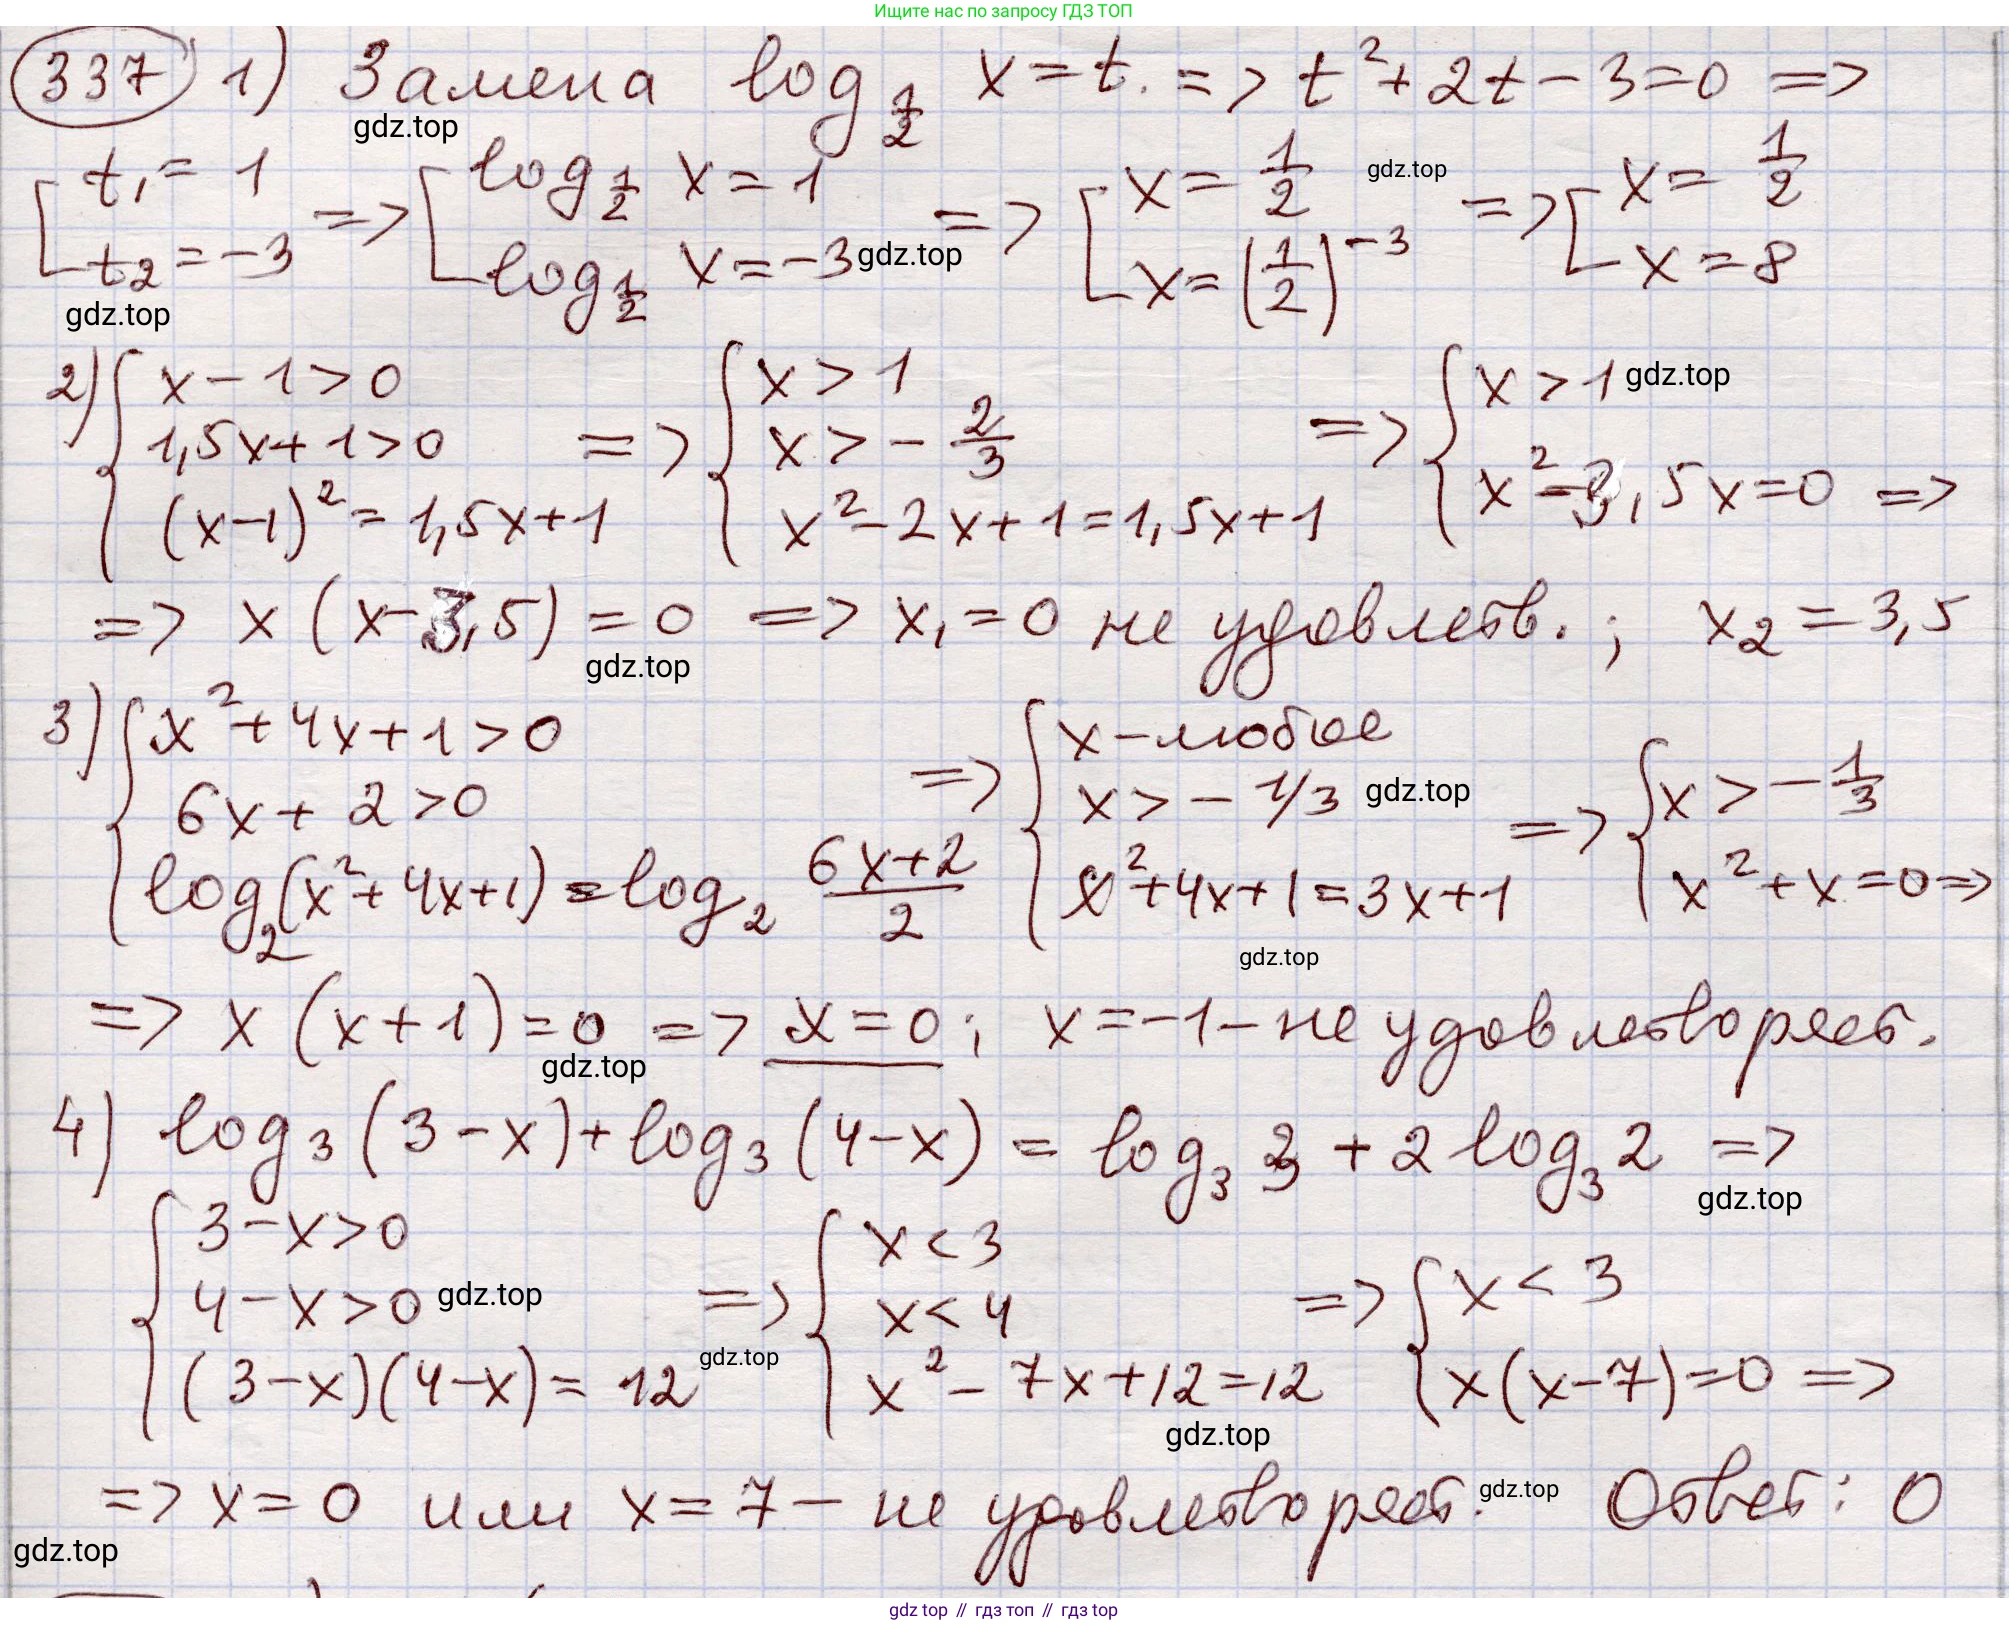 Ищите нас по запросу ГДЗ ТОП
337 1) Замена log_{1/2} x = t. => t² + 2t − 3 = 0 =>
gdz.top
[ t₁ = 1 ; t₂ = −3 => [ log_{1/2} x = 1 ; log_{1/2} x = −3 => [ x = 1/2 ; x = (1/2)^{−3} => [ x = 1/2 ; x = 8
gdz.top
gdz.top
gdz.top
2) { x − 1 > 0 ; 1,5x + 1 > 0 ; (x−1)² = 1,5x + 1 => { x > 1 ; x > −2/3 ; x² − 2x + 1 = 1,5x + 1 => { x > 1 ; x² − 3,5x = 0 =>
gdz.top
=> x (x − 3,5) = 0 => x₁ = 0 не удовлетв. ; x₂ = 3,5
gdz.top
3) { x² + 4x + 1 > 0 ; 6x + 2 > 0 ; log₂(x² + 4x + 1) = log₂ (6x+2)/2 => { x − любое ; x > −1/3 ; x² + 4x + 1 = 3x + 1 => { x > −1/3 ; x² + x = 0 =>
gdz.top
gdz.top
=> x (x + 1) = 0 => x = 0 ; x = −1 − не удовлетворяет.
gdz.top
4) log₃ (3 − x) + log₃ (4 − x) = log₃ 3 + 2 log₃ 2 =>
gdz.top
{ 3 − x > 0 ; 4 − x > 0 ; (3−x)(4−x) = 12 => { x < 3 ; x < 4 ; x² − 7x + 12 = 12 => { x < 3 ; x(x−7) = 0 =>
gdz.top
gdz.top
gdz.top
=> x = 0 или x = 7 − не удовлетворяет. Ответ: 0
gdz.top
gdz.top
gdz top // гдз топ // гдз top